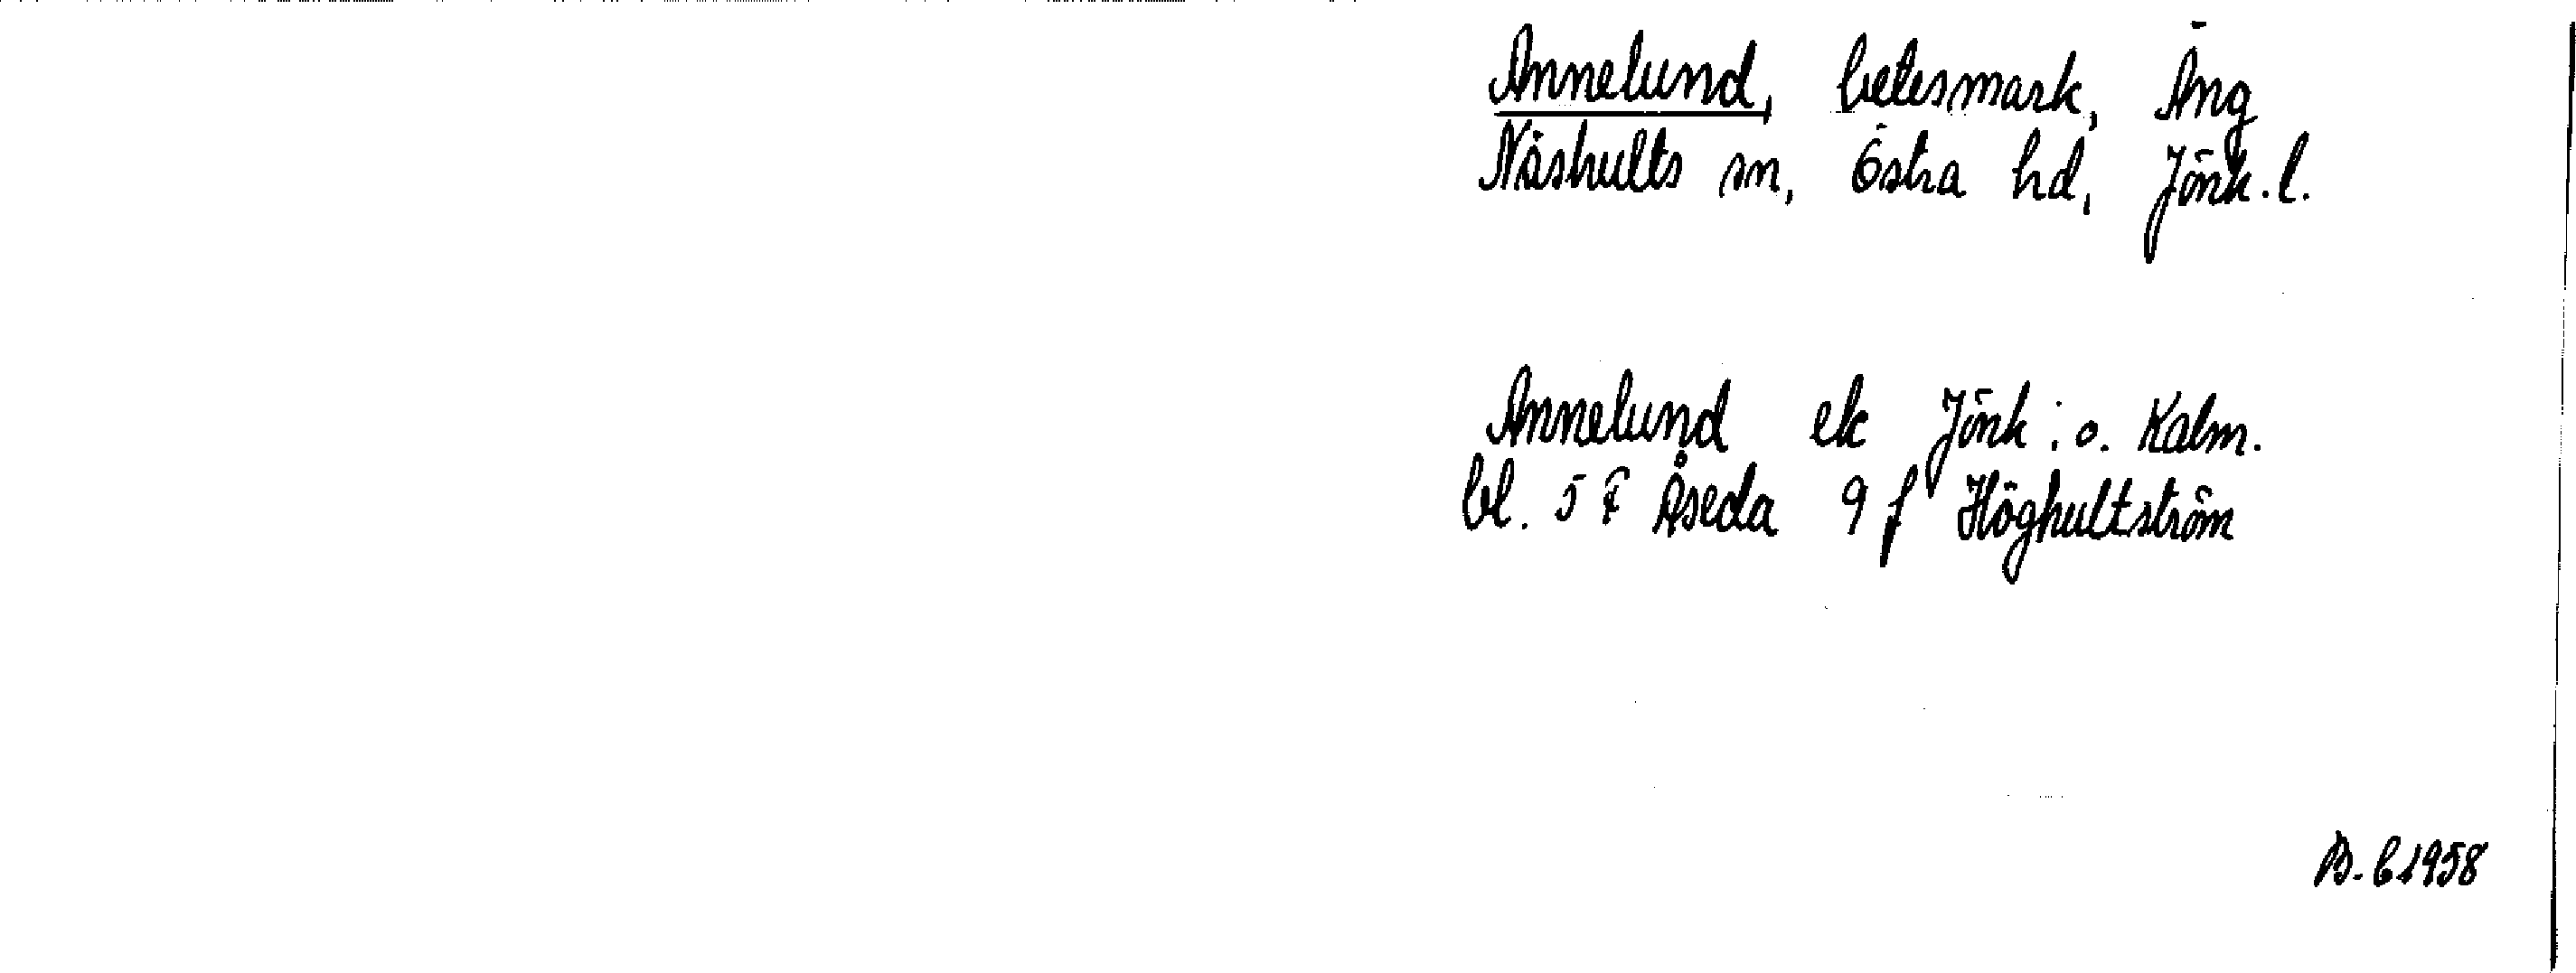 Annelund, betesmark, Äng
Näshults sn, Östra hd, Jönk. l.
Annelund ek Jönk: o. Kalm.
bl. 5 F Åseda 9 f Höghultström
B. C 1958